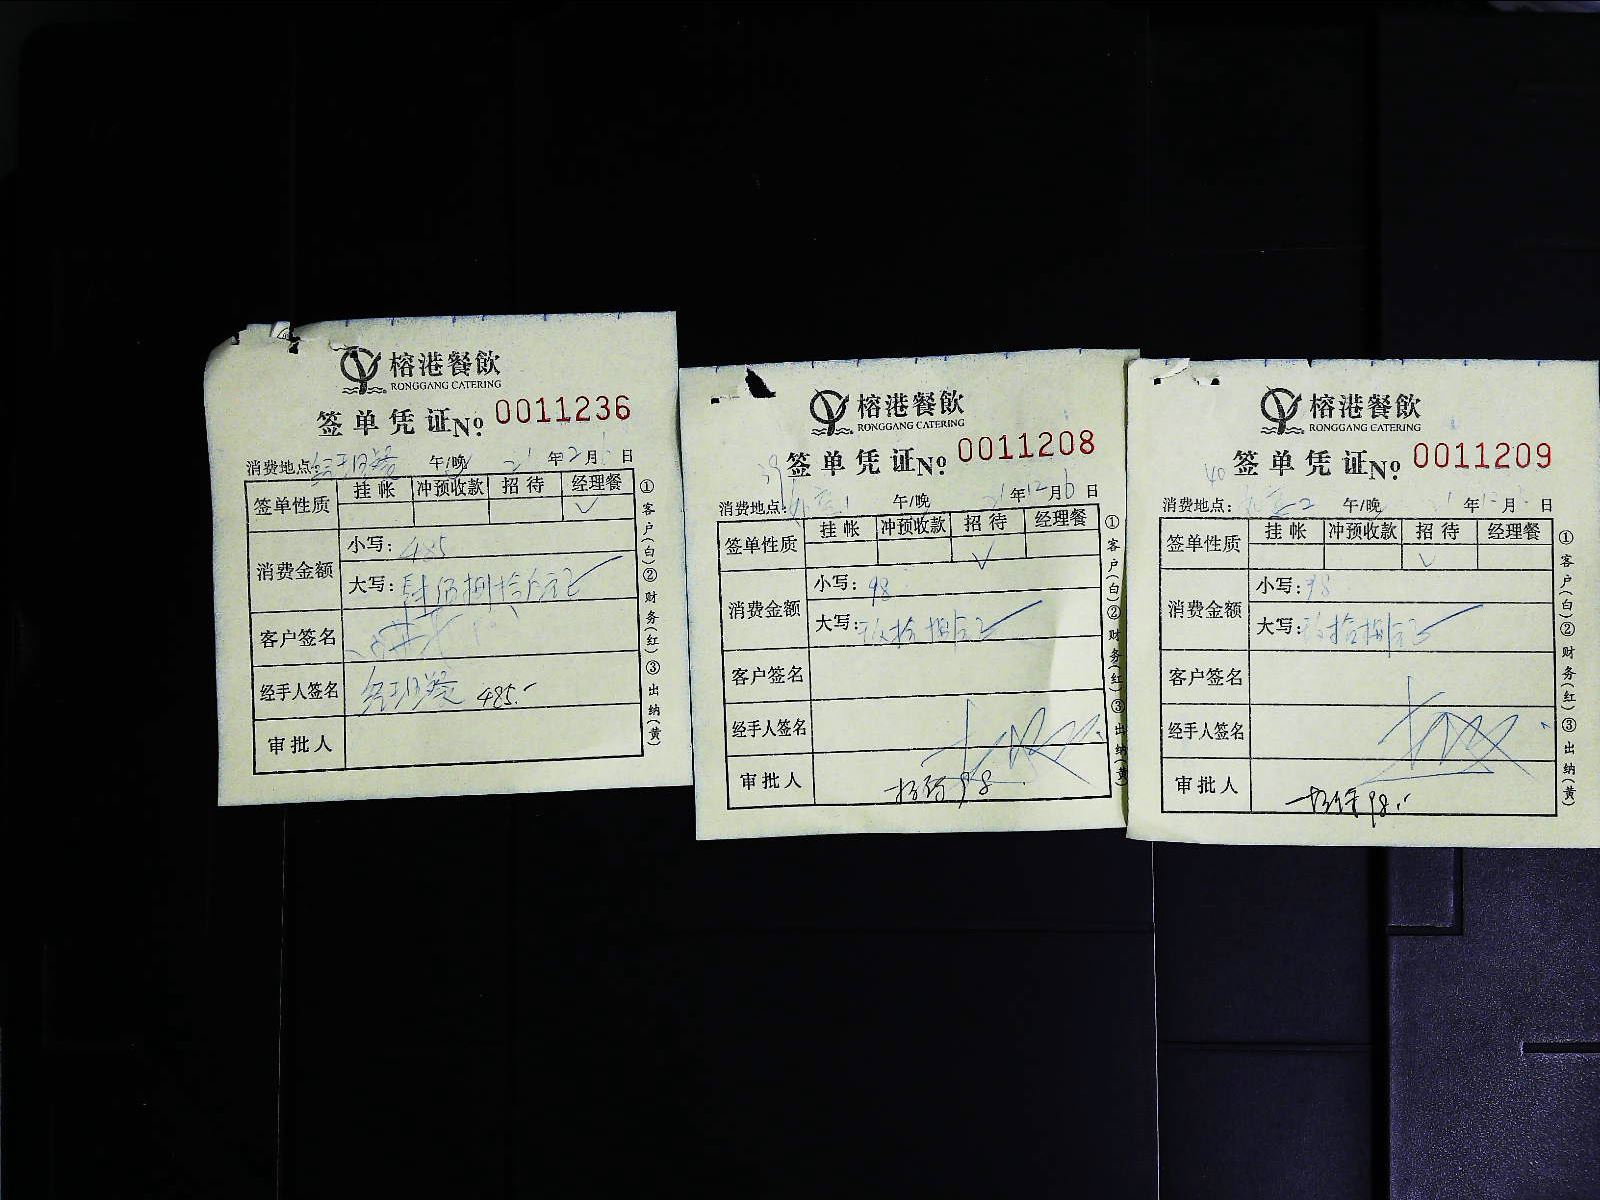 榕港餐飲
RONGGANG CATERING
签单凭证 No. 0011236
消费地点: 午/晚 21年2月6日
签单性质 挂帐 冲预收款 招待 经理餐
✓
消费金额 小写: 485
大写: 肆佰捌拾伍元正
客户签名
经手人签名 485.-
审批人
①客户(白)②财务(红)③出纳(黄)
榕港餐飲
RONGGANG CATERING
39 签单凭证 No. 0011208
消费地点: 午/晚 21年12月6日
签单性质 挂帐 冲预收款 招待 经理餐
✓
消费金额 小写: 98
大写: 玖拾捌元正
客户签名
经手人签名
审批人 招待98
①客户(白)②财务(红)③出纳(黄)
榕港餐飲
RONGGANG CATERING
40 签单凭证 No. 0011209
消费地点: 午/晚 年 月 日
签单性质 挂帐 冲预收款 招待 经理餐
✓
消费金额 小写: 98
大写: 玖拾捌元正
客户签名
经手人签名
审批人 招待98.-
①客户(白)②财务(红)③出纳(黄)